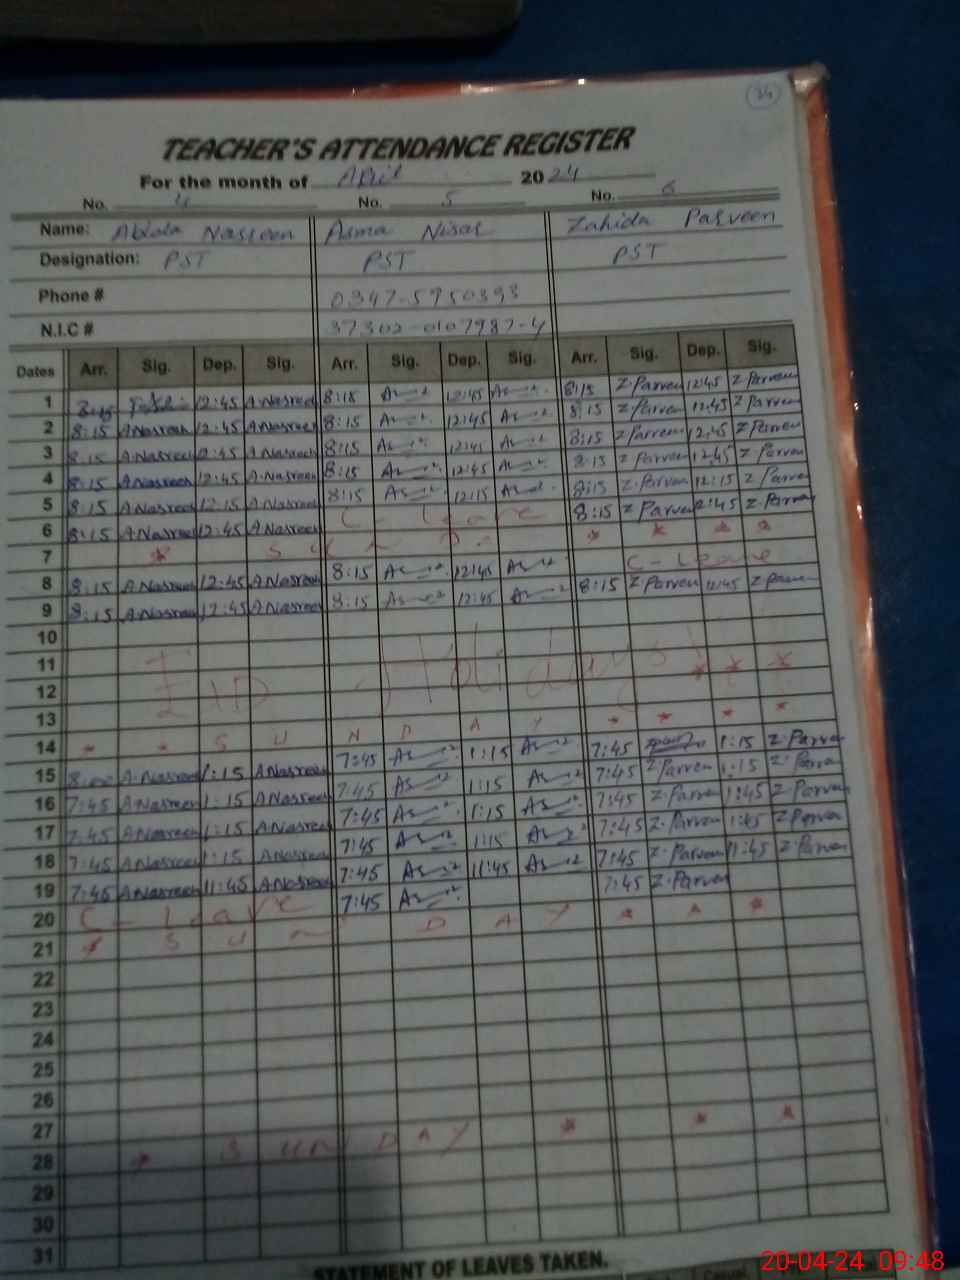 34
TEACHER'S ATTENDANCE REGISTER
For the month of April 2024
No. 4 No. 5 No. 6
Name: Abida Nasreen Asma Nisar Zahida Parveen
Designation: PST PST PST
Phone # 0347-5950393
N.I.C # 37302-0107987-4
Dates Arr. Sig. Dep. Sig. Arr. Sig. Dep. Sig. Arr. Sig. Dep. Sig.
1 12:45 A.Nasreen 8:15 12:45 8:15 Z Parveen 12:45 Z Parveen
2 8:15 A.Nasreen 12:45 A.Nasreen 8:15 12:45 8:15 Z Parveen 12:45 Z Parveen
3 8:15 A.Nasreen 12:45 A.Nasreen 8:15 12:45 8:15 Z Parveen 12:45 Z Parveen
4 8:15 A.Nasreen 12:45 A.Nasreen 8:15 12:45 8:15 Z Parveen 12:45 Z Parveen
5 8:15 A.Nasreen 12:15 A.Nasreen 8:15 12:15 8:15 Z.Parveen 12:15 Z Parveen
6 8:15 A.Nasreen 12:45 A.Nasreen C leave 8:15 Z Parveen 12:45 Z.Parveen
7 * S U N D * * * *
8 8:15 A.Nasreen 12:45 A.Nasreen 8:15 12:45 C-Leave
9 8:15 A.Nasreen 12:45 A.Nasreen 8:15 12:45 8:15 Z Parveen 12:45 Z Parveen
10
11 EID Holidays * * *
12
13
14 * * S U N D A Y * * * *
15 8:00 A.Nasreen 1:15 A.Nasreen 7:45 1:15 7:45 1:15 Z.Parveen
16 7:45 A.Nasreen 1:15 A.Nasreen 7:45 1:15 7:45 Z Parveen 1:15 Z.Parveen
17 7:45 A.Nasreen 1:15 A.Nasreen 7:45 1:15 7:45 Z.Parveen 1:45 Z.Parveen
18 7:45 A.Nasreen 1:15 A.Nasreen 7:45 1:15 7:45 Z.Parveen 1:45 Z.Parveen
19 7:45 A.Nasreen 11:45 A.Nasreen 7:45 11:45 7:45 Z.Parveen 11:45 Z.Parveen
20 C-leave 7:45 7:45 Z.Parveen
21 * S U N D A Y * * *
22
23
24
25
26
27
28 * S U N D A Y * * *
29
30
31
STATEMENT OF LEAVES TAKEN.
20-04-24 09:48